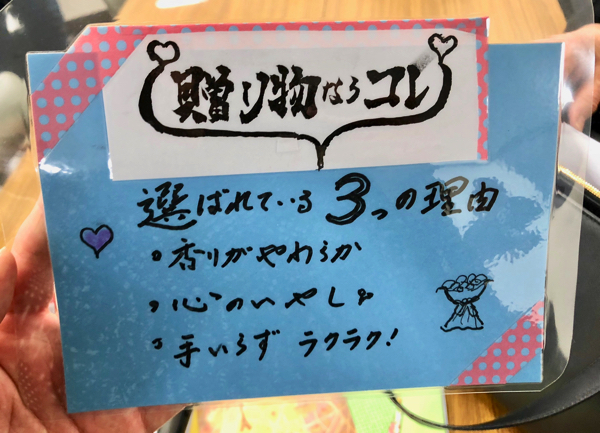 贈り物ならコレ
選ばれている3つの理由
・香りがやわらか
・心のいやし
・手いらず ラクラク!